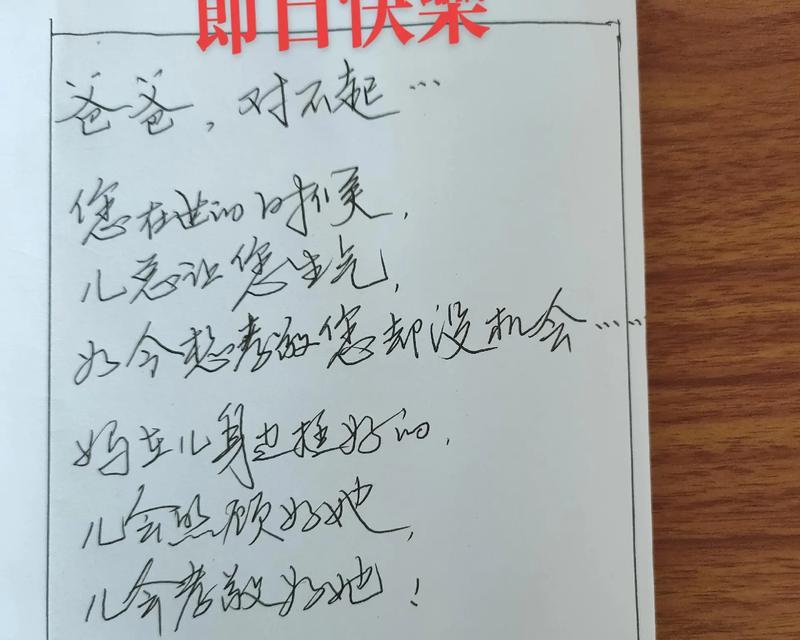 節日快樂
爸爸，对不起…
您在世的时候，
儿总让您生气，
如今想孝敬您却没机会……
妈在儿身边挺好的，
儿会照顾好她，
儿会孝敬好她！